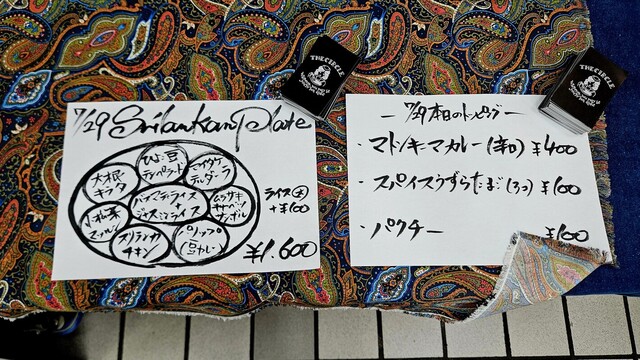 7/29 Srilankan Plate
ひよこ豆
テンパラード
大根
キラタ
バスマティライス
+
ジャスミンライス
ムラサキ
キャベツ
サンボル
小松菜
マッルン
スリランカ
チキン
パリップ
(豆カレー)
ライス大
+¥100
¥1,600
THE CIRCLE
THE CIRCLE
— 7/29 本日のトッピング —
・マトンキーマカレー(辛口) ¥400
・スパイスうずらたまご(3コ) ¥100
・パクチー ¥100